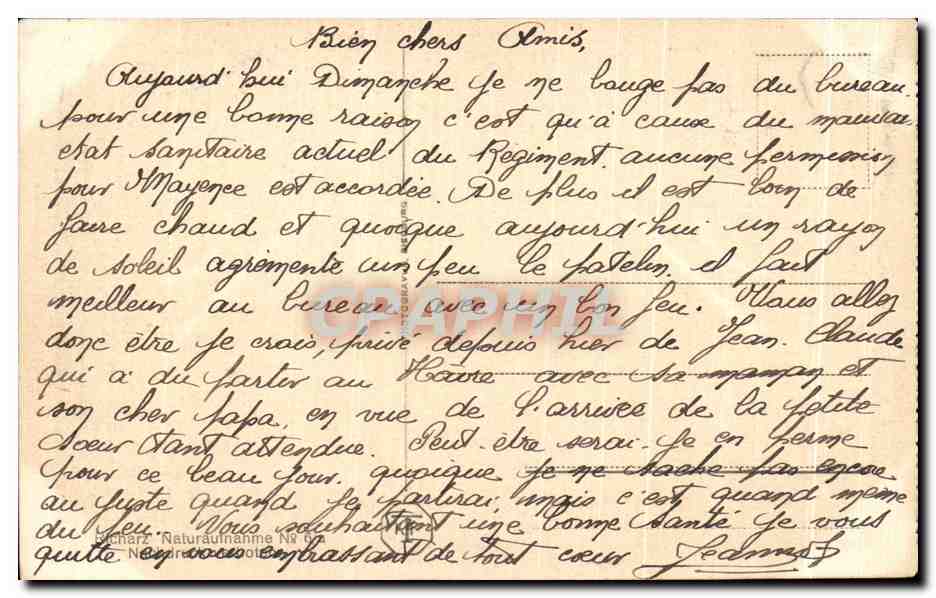 Bien chers Amis,
Aujourd'hui Dimanche je ne bouge pas du bureau
pour une bonne raison c'est qu'à cause du mauvais
etat sanitaire actuel du Regiment. aucune permission
pour Mayence est accordée. De plus il est loin de
faire chaud et quoique aujourd'hui un rayon
de soleil agremente un peu le patelin. il fait
meilleur au bureau avec un bon feu. Vous allez
donc être je crois, privé depuis hier de Jean. Claude
qui a du partir au Hâvre avec sa maman et
son cher papa, en vue de l'arrivée de la petite
soeur tant attendue. Peut-être serai-je en perme
pour ce beau jour. quoique je ne sache pas encore
au juste quand je partirai, mais c'est quand même
du feu. Vous souhaitant une bonne santé je vous
quitte en vous embrassant de tout coeur Jeannot
CPAPHIL
Richarz Naturaufnahme No